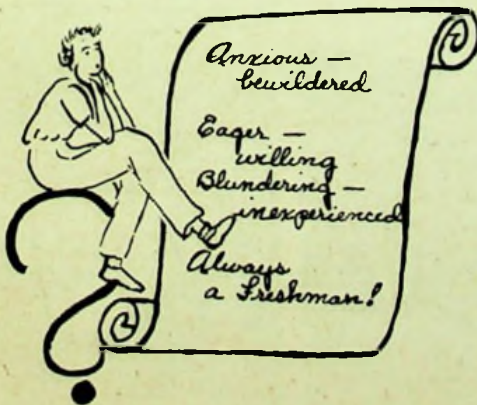 Anxious —
bewildered
Eager —
willing
Blundering —
inexperienced
Always
a Freshman!